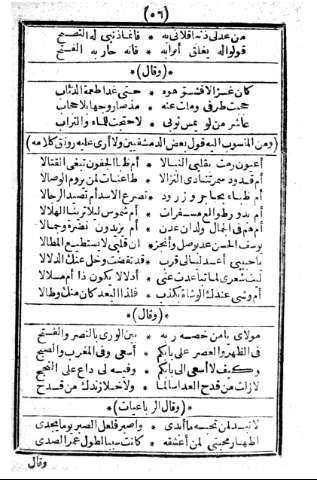 (٥٦)
من عدلي ذنبه اقلاني به * فانفاذ نبي له التصحيح
قولوا له يغلق أبوابه * فانه حاربه الفتح
*(وقال)*
كان غز الافتنتو هوه * حتى غدا طعمة الذئاب
حجبت طرفي ومات عنه * مذ صار وجها بلا حجاب
عاشر من لو يمس ثوبي * لاحتجت للماء والتراب
(ومن المنسوب اليه قول بعض الدمشقيين ولا أرى عليه رونق كلامه)
أعيون رمت بقلبي النبالا * أم ظبا الجفون تبغي القتالا
أم قدود سمر تنادى النزالا * طاعنات لمن يروم الوصالا
أم ظباء بحاجر وزرود * تصرع الاسد أم تصيد الرجالا
أم بدور طوالع مسفرات * أم شموس ليلا تريك الهلالا
أم هم في الجمال ولدان عدن * أم يزيدون نضرة وجمالا
يوسف الحسن عد بوصل وأنجز * ان قلبي لا يستطيع المطالا
يا حبيبي أعد ليالي قرب * قد تقضت وخل عنك الدلالا
ليت شعرى لما تباعدت عني * أدلالا يكون ذا أم ملالا
أم وشى عندك الوشاة بكذب * فلذا البعد كان منك وطالا
*(وقال)*
مولاى يا من خصه ربه * بين الورى بالنصر والفتح
في الظهر والعصر على بابكم * أسعى وفي المغرب والصبح
وكيف لا أسعى الى بابكم * وفيه لي داع على النجح
لازلت من قدح العدا سالما * ولا خلا زندك من قدح
*(وقال الرباعيات)*
لا تبد لمن تحبه ما أبدى * واصبر فلعل الصبر يوما يجدى
اظهار محبتي لمن أعشقه * كانت سببا لطول عمر الصدى
وقال